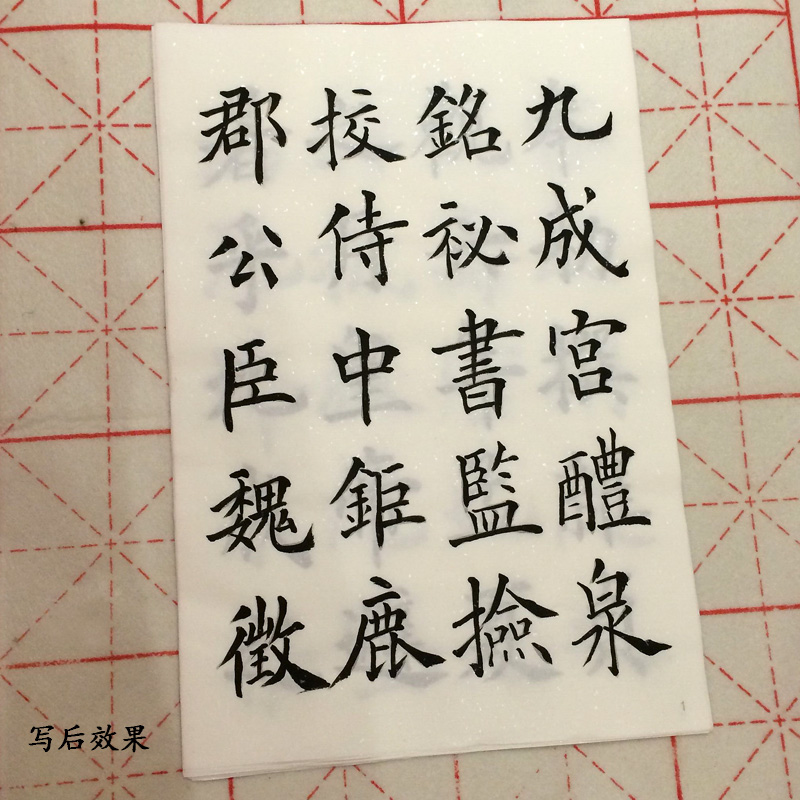 九成宮醴泉
銘祕書監撿
挍侍中鉅鹿
郡公臣魏徵
1
写后效果